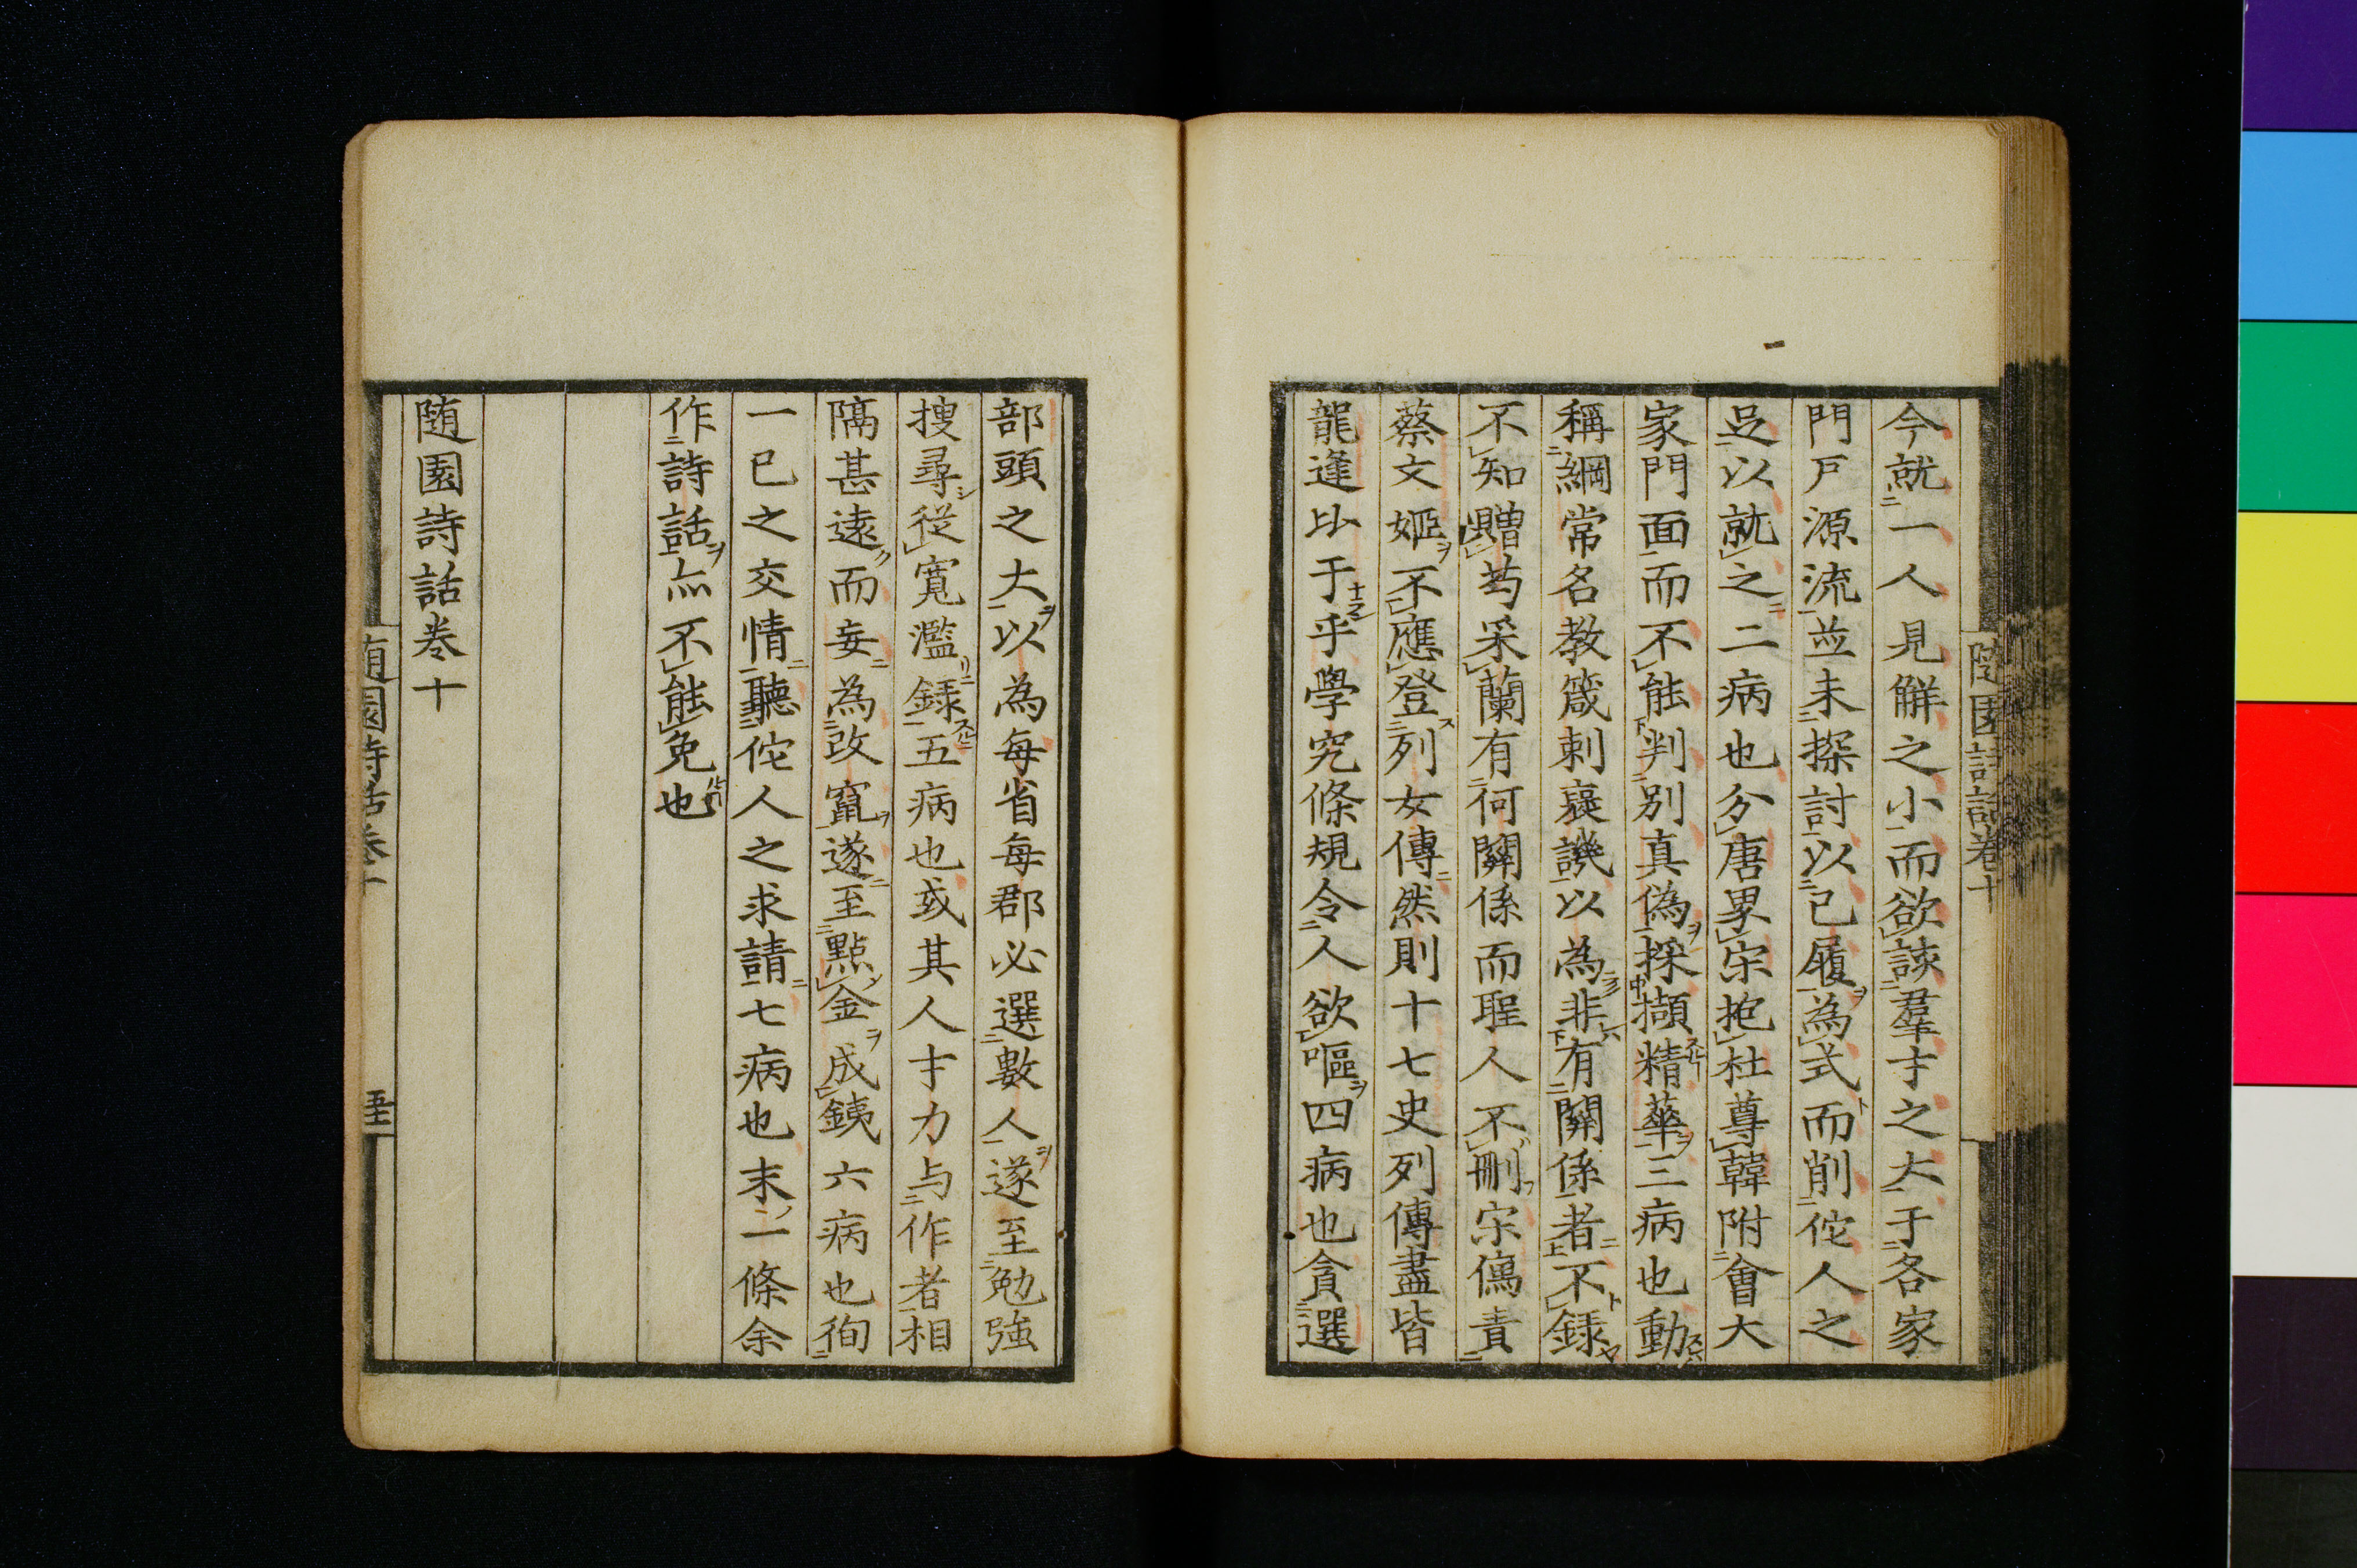 今就一人見解之小而欲談羣才之大于各家
門戸源流並未探討以己履為式而削佗人之
足以就之二病也分唐界宋抱杜尊韓附會大
家門面而不能判別真偽採擷精華三病也動
稱綱常名教箴刺襃譏以為非有關係者不録
不知贈芍采蘭有何關係而聖人不刪宋儒責
蔡文姬不應登列女傳然則十七史列傳盡皆
龍逄比干乎學究條規令人欲嘔四病也貪選
部頭之大以為每省每郡必選數人遂至勉強
捜尋從寛濫録五病也或其人才力与作者相
隔甚遠而妄為改竄遂至點金成銕六病也徇
一己之交情聽佗人之求請七病也末一條余
作詩話亦不能免也
随園詩話巻十